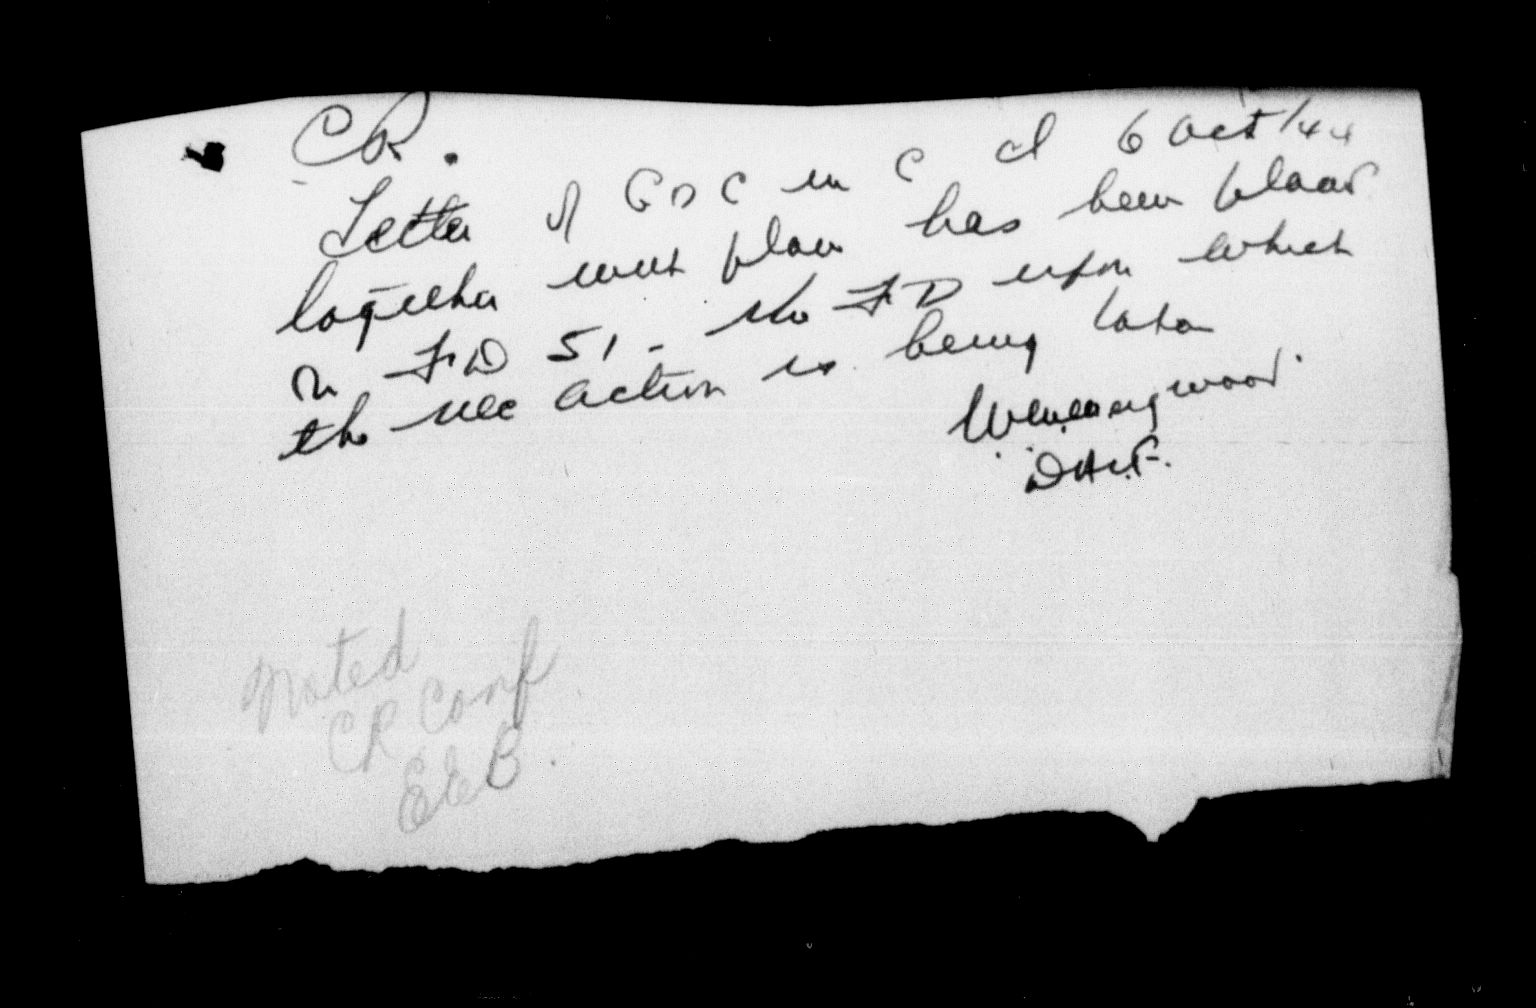 CR.
Letter of G O C in C d 6 Oct/44
together with plan has been placed
on FD 51 - the FD upon which
the nec action is being taken
D H & F.
Noted
CR Conf
EEB.